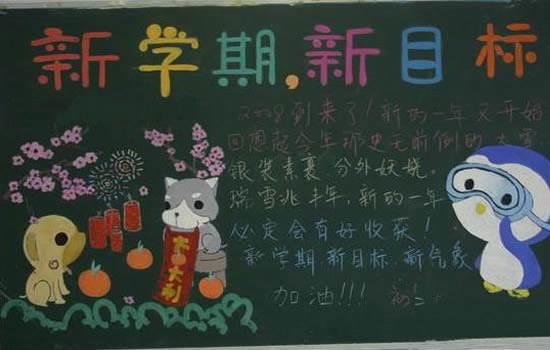 新学期,新目标
2008到来了!新的一年又开始
回想起今年那史无前例的大雪
银装素裹 分外妖娆,
瑞雪兆丰年,新的一年
必定会有好收获!
新学期,新目标,新气象
加油!!!
大吉大利